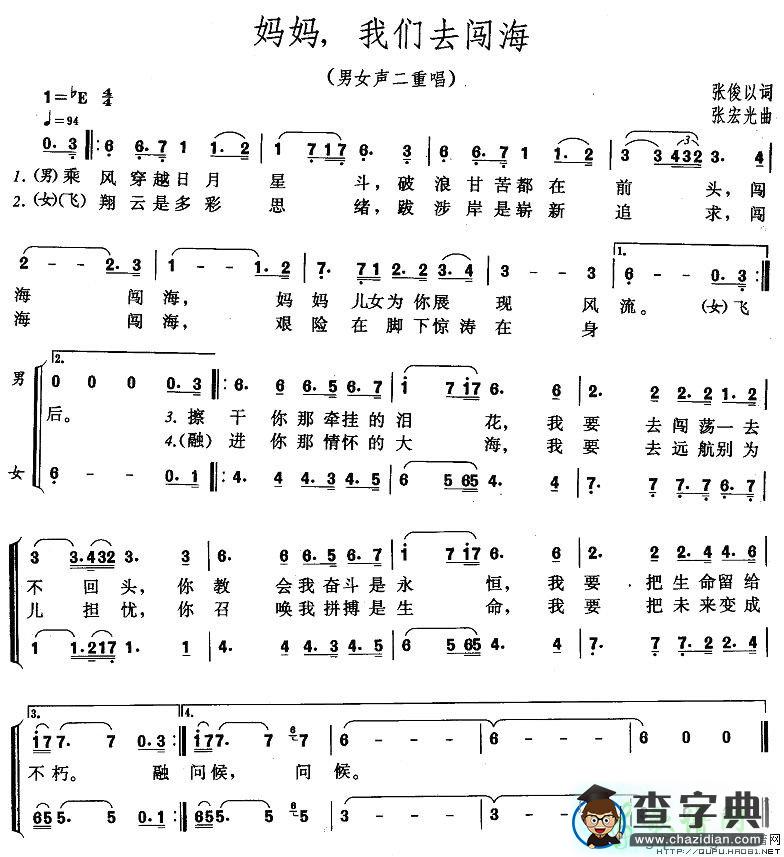 妈妈，我们去闯海
（男女声二重唱）
1=♭E 4/4
♩=94
张俊以词
张宏光曲
0. 3 6 6. 7 1 1. 2 1 7 1 7 6. 3 6. 7 1 3 1. 2 3 3 432 3. 4
1. (男)乘 风 穿越日月 星 斗，破 浪甘苦都在 前 头，闯
2. (女)(飞) 翔云是多彩 思 绪，跋 涉岸是崭新 追 求，闯
2 - - 2. 3 1 - - 1. 2 7. 7 1 2. 2 3. 4 3 - 3 - 1. 6 - - 0. 3
海 闯 海， 妈 妈 儿女为你展 现 风 流。 (女)飞
海 闯 海， 艰 险 在脚下惊涛在 身
2.
男 0 0 0 0. 3 6. 6 6. 5 6. 7 i 7 i7 6. 6 2. 2 2. 2 1. 2
后。 3. 擦 干 你那牵挂的泪 花，我 要 去闯荡一去
4.(融)进 你那情怀的大 海，我 要 去远航别为
女 6 - - 0. 1 4. 4 4. 3 4. 5 6 5 65 4. 4 7. 7 7. 7 6. 7
3 3. 432 3. 3 6. 6 6. 5 6. 7 i 7 i7 6. 6 2. 2 2. 2 2. 4
不 回头，你教 会我奋斗是永 恒，我 要 把生命留给
儿 担忧，你召 唤我拼搏是生 命，我 要 把未来变成
1 1. 217 1. 1 4. 4 4. 3 4. 5 6 5 65 4. 4 7. 7 7. 7 2. 4
3. 4.
i7 7. 7 0. 3 i7 7. 7 6 6 - - - 6 - - - 6 - - - 6 0 0
不 朽。 融 问候， 问 候。
65 5. 5 0. 1
查字典
www.chazidian.com